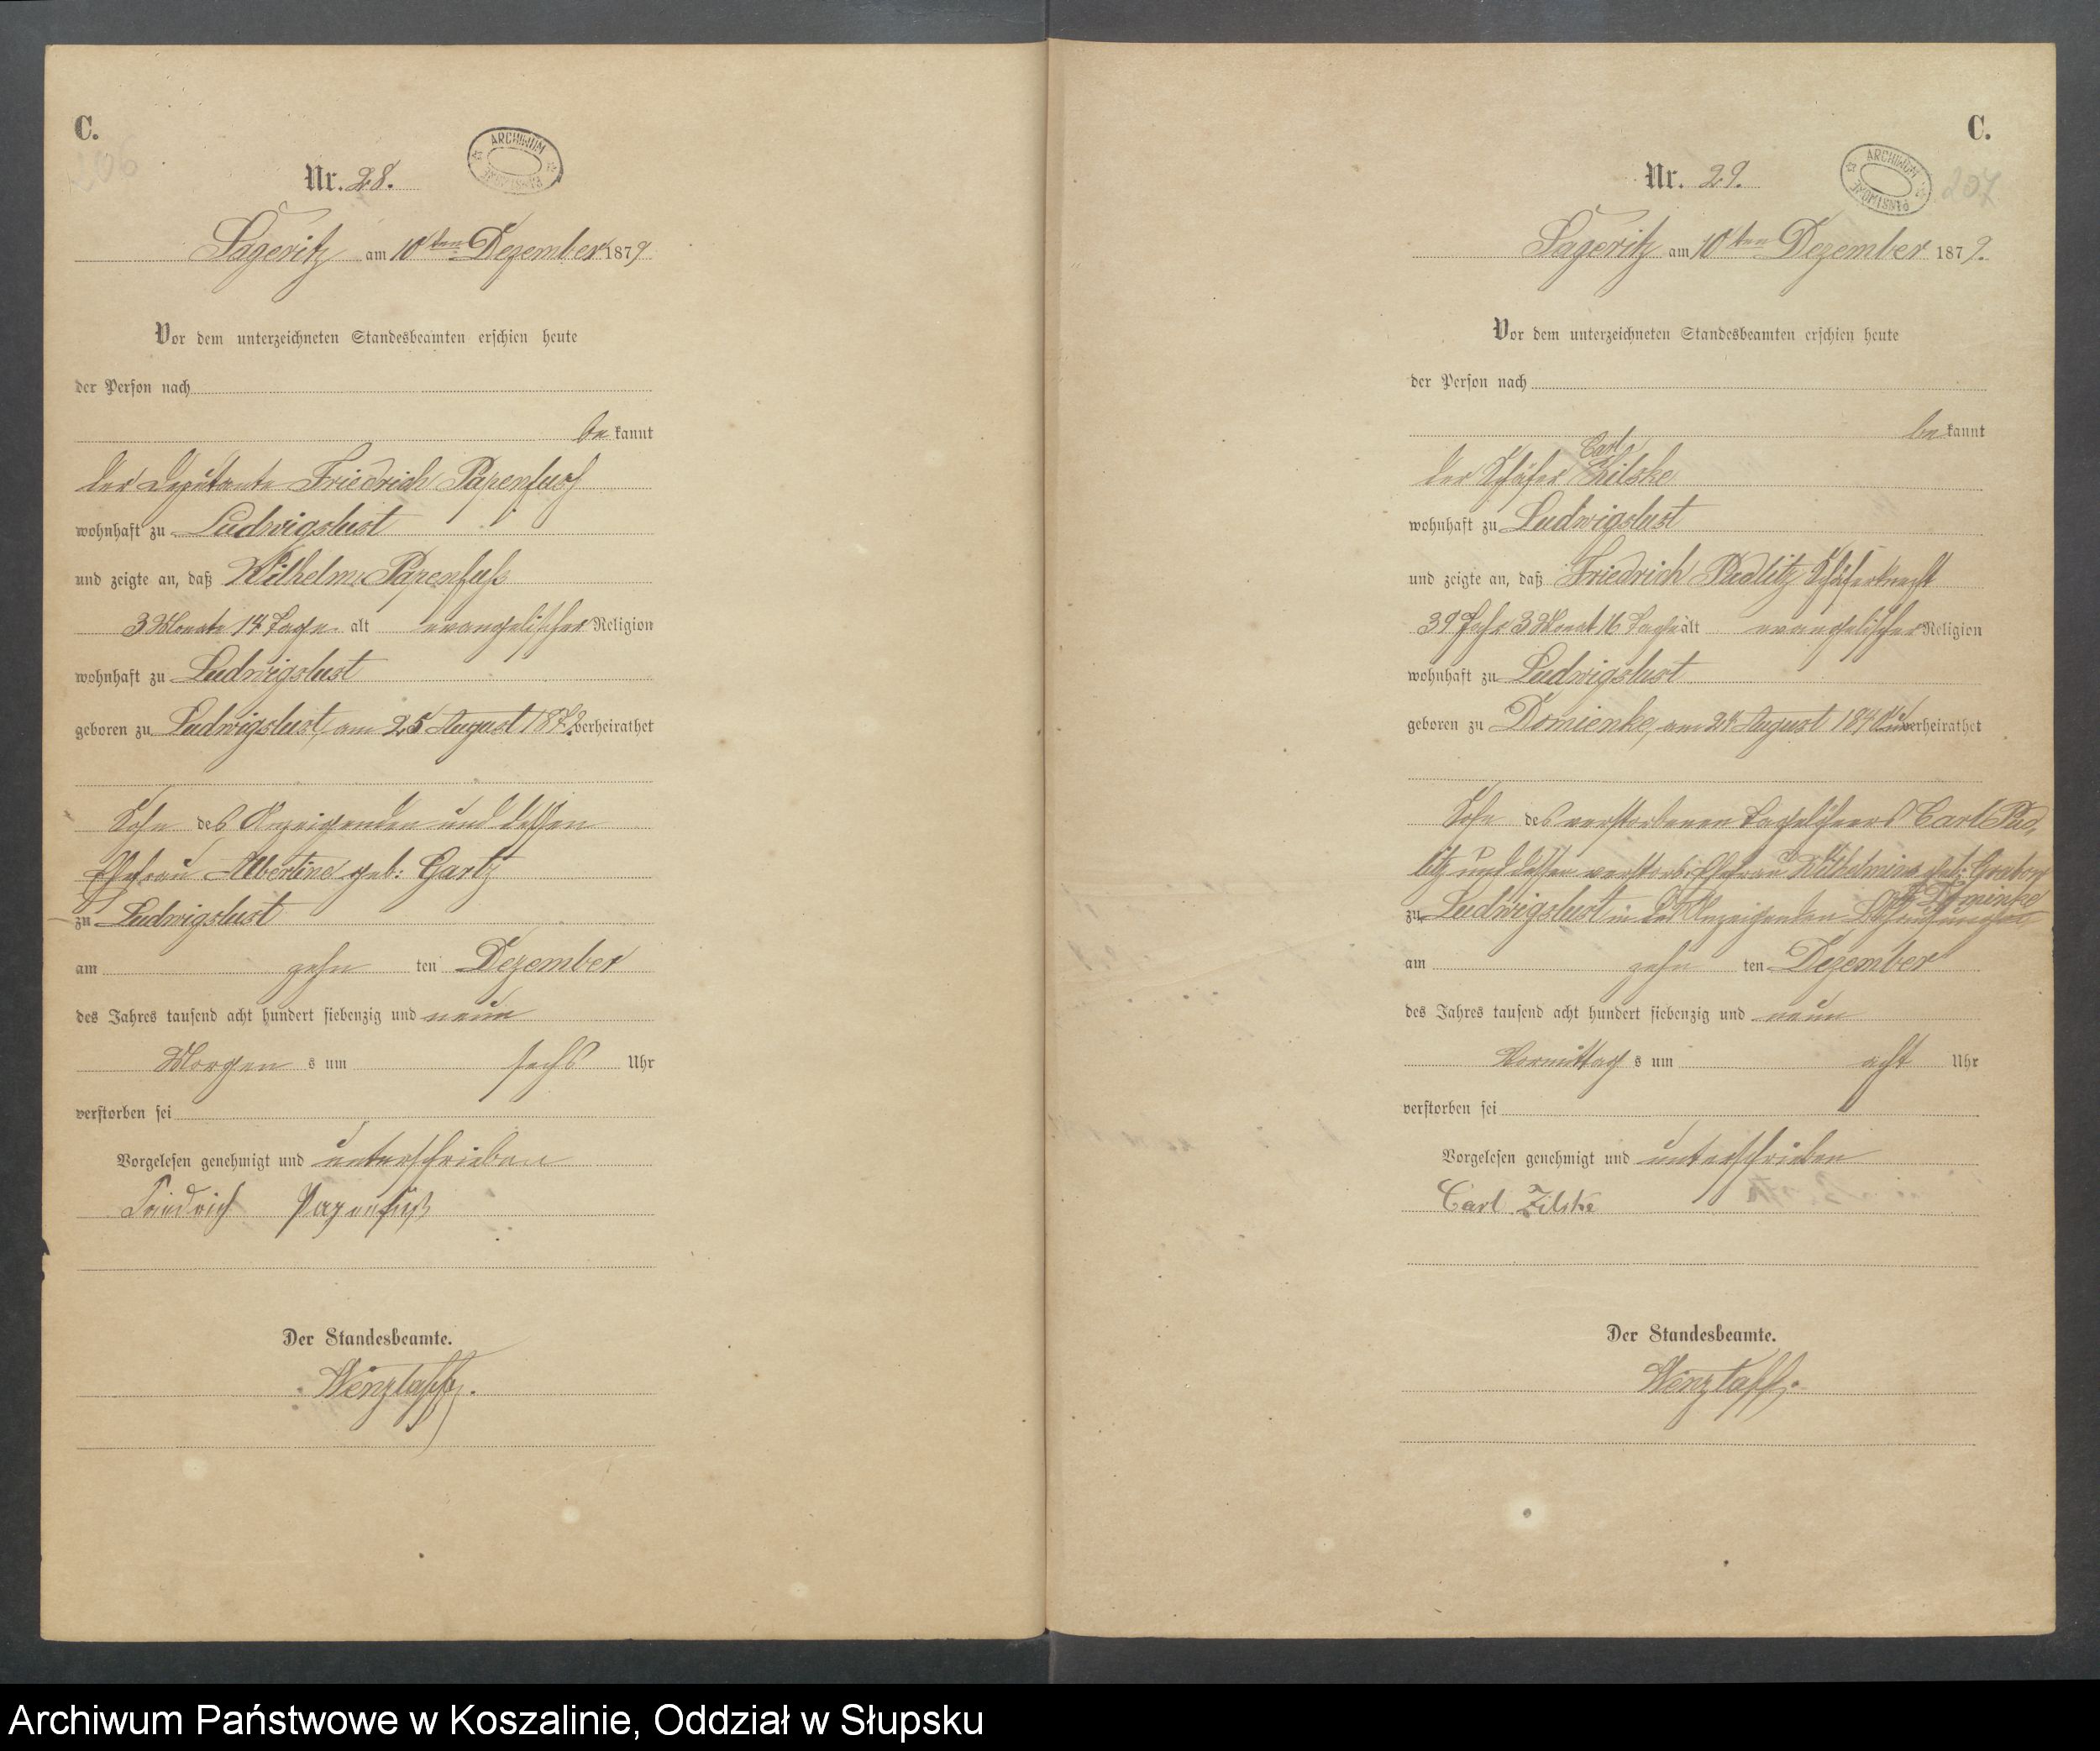 C.
206
Nr. 28.
ARCHIWUM
Sageritz am 10ten Dezember 1879
Vor dem unterzeichneten Standesbeamten erschien heute
der Person nach
be kannt
der Deputante Friedrich Papenfuß
wohnhaft zu Ludwigslust
und zeigte an, daß Wilhelm Papenfuß
3 Monate 14 Tage alt evangelischer Religion
wohnhaft zu Ludwigslust
geboren zu Ludwigslust, am 25 August 1879 verheirathet
Sohn des Anzeigenden und dessen
Ehefrau Albertine geb: Gartz
zu Ludwigslust
am zehn ten Dezember
des Jahres tausend acht hundert siebenzig und neun
Morgen s um sechs Uhr
verstorben sei
Vorgelesen genehmigt und unterschrieben
Friedrich Papenfuß
Der Standesbeamte.
Wenzlaff.
C.
207
Nr. 29.
ARCHIWUM PAŃSTWOWE
Sageritz am 10ten Dezember 1879.
Vor dem unterzeichneten Standesbeamten erschien heute
der Person nach
be kannt
Carl
der Schäfer Zielske
wohnhaft zu Ludwigslust
und zeigte an, daß Friedrich Pudlitz Schäferknecht
39 Jahr 3 Monat 16 Tage alt evangelischer Religion
wohnhaft zu Ludwigslust
geboren zu Domienke, am 24 August 1840 unverheirathet
Sohn des verstorbenen Tagelöhners Carl Pud-
litz und dessen verstorb: Ehefrau Wilhelmine geb: Grabow
zu Dominke
zu Ludwigslust in des Anzeigenden
am zehn ten Dezember
des Jahres tausend acht hundert siebenzig und neun
Vormittag s um acht Uhr
verstorben sei
Vorgelesen genehmigt und unterschrieben
Carl Zilske
Der Standesbeamte.
Wenzlaff.
Archiwum Państwowe w Koszalinie, Oddział w Słupsku